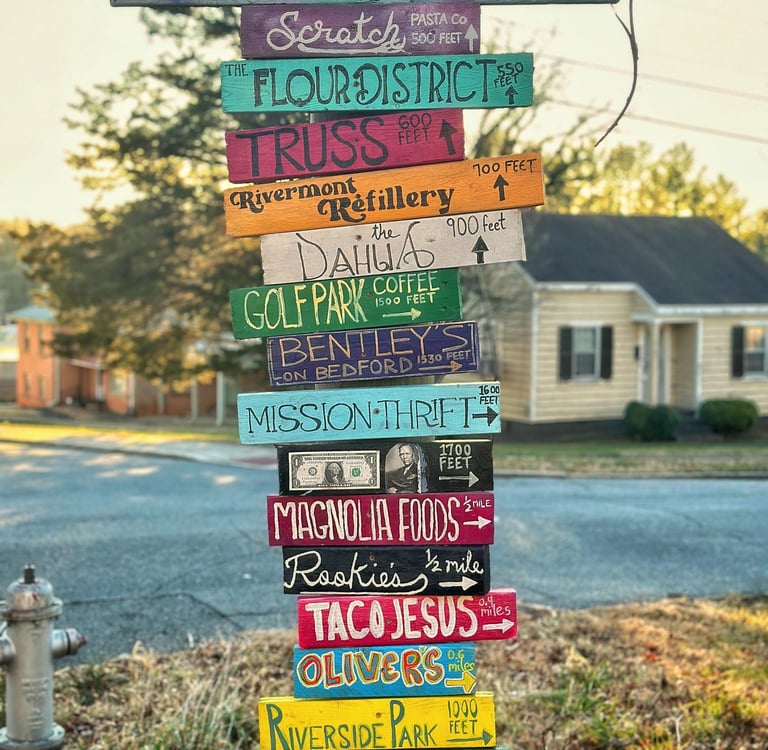 Scratch PASTA CO
500 FEET
THE FLOUR DISTRICT 550 FEET
TRUSS 600 FEET
Rivermont Refillery 700 FEET
the DAHLIA 900 feet
GOLF PARK COFFEE
1500 FEET
BENTLEY'S
ON BEDFORD 1530 FEET
MISSION THRIFT 1600 FEET
1700 FEET
MAGNOLIA FOODS 1/2 MILE
Rookie's 1/2 mile
TACO JESUS 0.4 miles
OLIVER'S 0.6 miles
RIVERSIDE PARK 1000 FEET